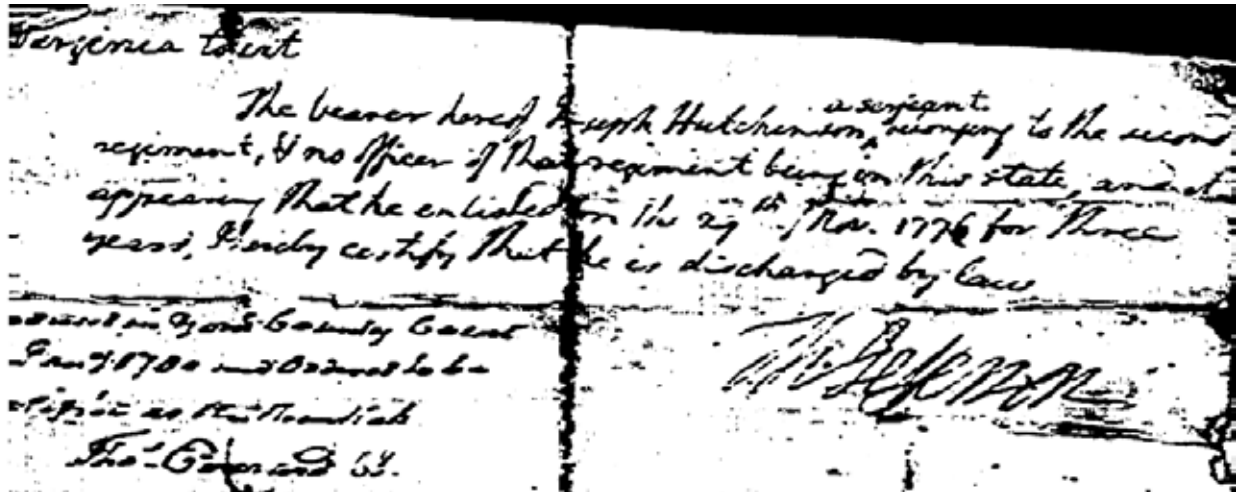 Virginia to wit
The bearer hereof Joseph Hutchenson, a serjeant belonging to the second
regiment, & no officer of that regiment being in this state, and it
appearing that he enlisted on the 29th of Nov. 1776 for three
years, I hereby certify that he is discharged by law
Th Jefferson
in York County Court
1780 and Ordered to be
as
Tho.